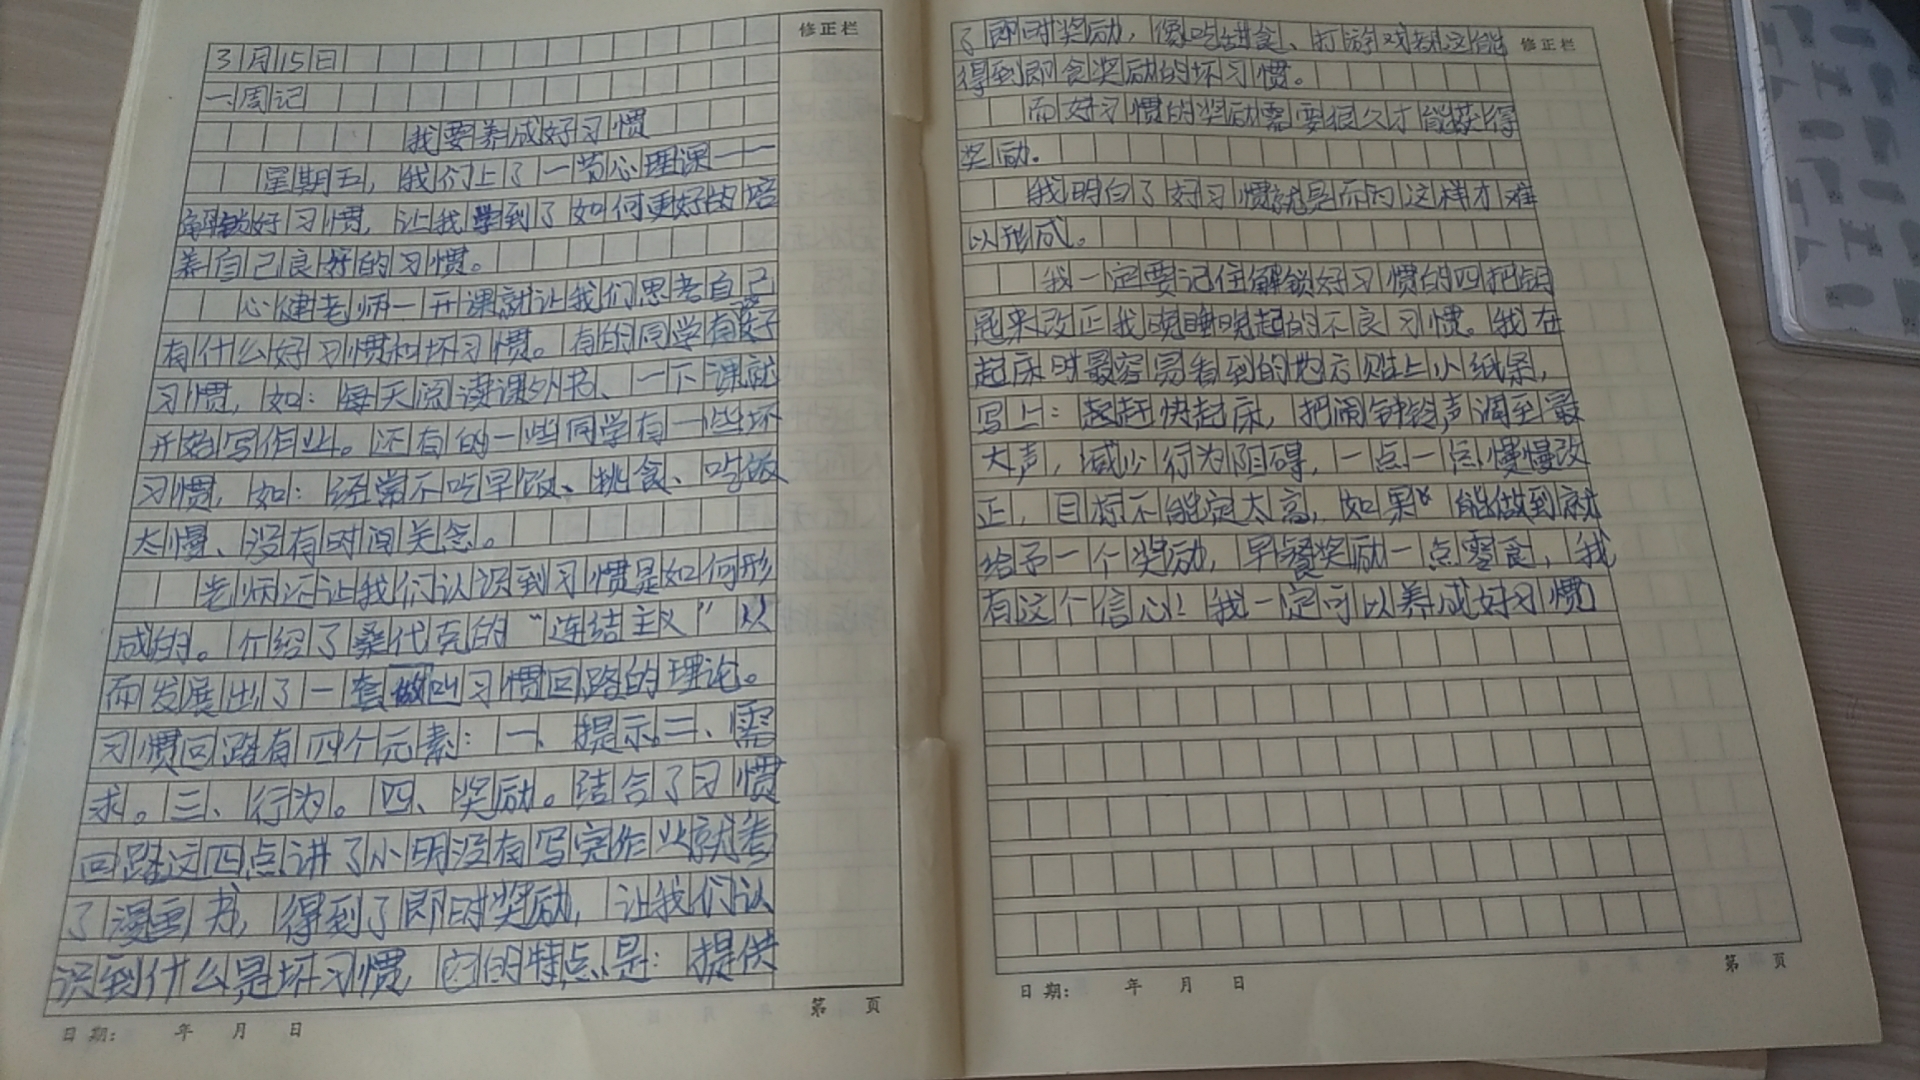 修正栏
3月15日
一、周记
我要养成好习惯
星期五，我们上了一节心理课——
解锁好习惯，让我学到了如何更好的培
养自己良好的习惯。
心健老师一开课就让我们思考自己
有什么好习惯和坏习惯。有的同学有好
习惯，如：每天阅读课外书、一下课就
开始写作业。还有的一些同学有一些坏
习惯，如：经常不吃早饭、挑食、吃饭
太慢、没有时间关念。
老师还让我们认识到习惯是如何形
成的。介绍了桑代克的“连结主义”从
而发展出了一套做叫习惯回路的理论。
习惯回路有四个元素：一、提示。二、需
求。三、行为。四、奖励。结合了习惯
回路这四点讲了小明没有写完作业就看
了漫画书，得到了即时奖励，让我们认
识到什么是坏习惯，它的特点是：提供
日期： 年 月 日
第 页
修正栏
了即时奖励，像吃甜食、打游戏都这能
得到即食奖励的坏习惯。
而好习惯的奖励需要很久才能获得
奖励。
我明白了好习惯就是而的这样才难
以形成。
我一定要记住解锁好习惯的四把钥
匙来改正我晚睡晚起的不良习惯。我在
起床时最容易看到的地方贴上小纸条，
写上：起赶快起床，把闹钟铃声调至最
大声，减少行为阻碍，一点一点慢慢改
正，目标不能定太高，如果能做到就
给予一个奖励，早餐奖励一点零食，我
有这个信心！我一定可以养成好习惯
日期： 年 月 日
第 页